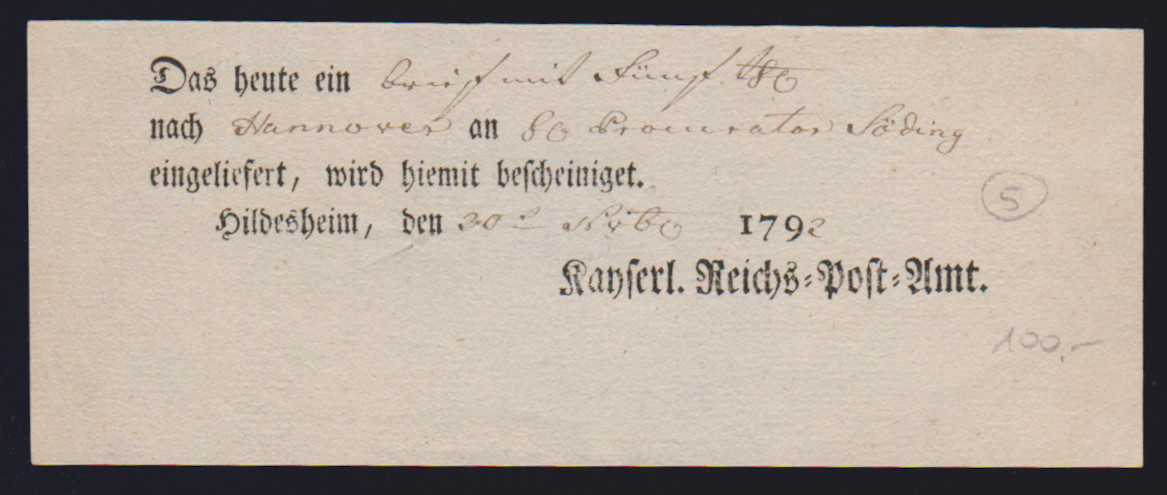 Das heute ein brief mit Fünf
nach Hannover an Procurator Söding
eingeliefert, wird hiemit bescheiniget.
5
Hildesheim, den 30 1792
Kayserl. Reichs=Post=Amt.
100,-